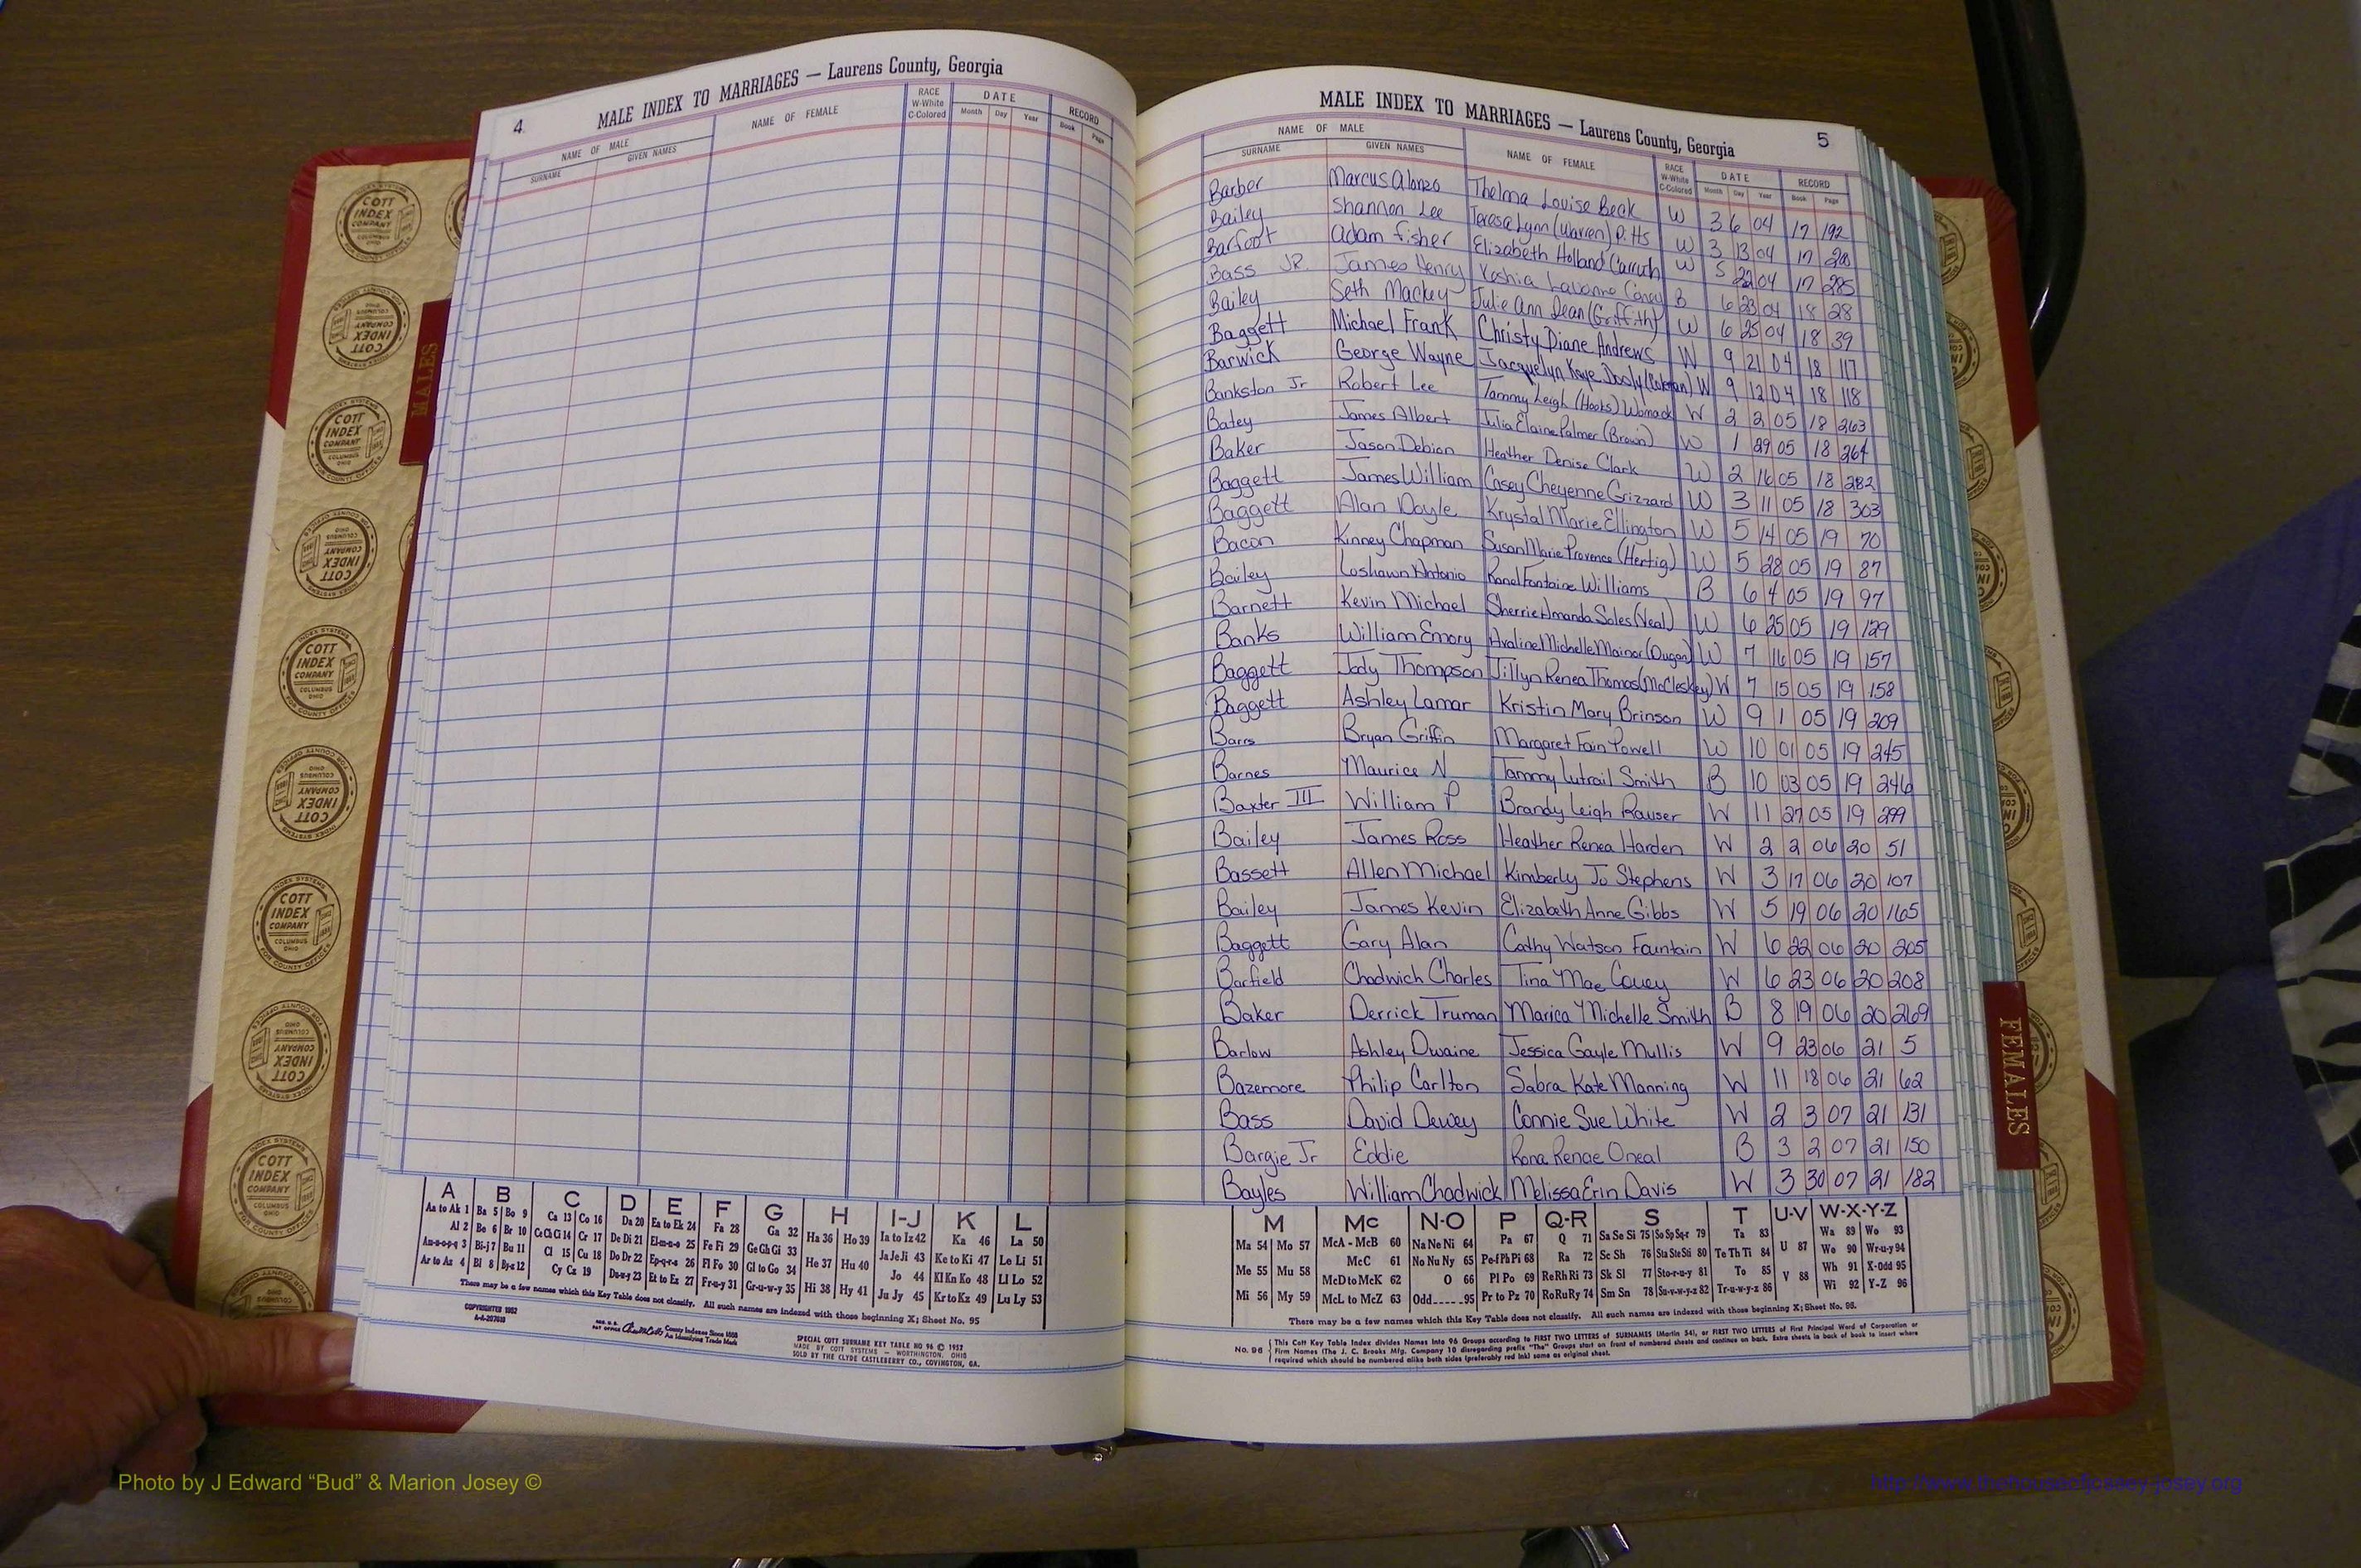 4
MALE INDEX TO MARRIAGES — Laurens County, Georgia
NAME OF MALE
SURNAME GIVEN NAMES
NAME OF FEMALE
RACE W-White C-Colored
DATE
Month Day Year
RECORD
Book Page
MALE INDEX TO MARRIAGES — Laurens County, Georgia
5
NAME OF MALE
SURNAME GIVEN NAMES
NAME OF FEMALE
RACE W-White C-Colored
DATE
Month Day Year
RECORD
Book Page
Barber Marcus Alonzo Thelma Louise Beck W 3 6 04 17 192
Bailey Shannon Lee Teresa Lynn (Warren) Pitts W 3 13 04 17
Barfoot Adam Fisher Elizabeth Holland W 5 22 04 17 285
Bass JR. James Henry B 6 23 04 18 28
Bailey Seth Mackey Julie Ann Dean (Griffith) W 6 25 04 18 39
Baggett Michael Frank Christy Diane Andrews W 9 21 04 18 117
Barwick George Wayne Jacquelyn Kaye W 9 12 04 18 118
Bankston Jr Robert Lee Tammy Leigh (Hooks) Womack W 2 2 05 18 263
Batey James Albert Julia Elaine Palmer (Brown) W 1 29 05 18 264
Baker Jason Debion Heather Denise Clark W 2 16 05 18 282
Baggett James William Casey Cheyenne Grizzard W 3 11 05 18 303
Baggett Alan Doyle Krystal Marie Ellington W 5 14 05 19 70
Bacon Kinney Chapman Susan Marie Provence (Hertig) W 5 28 05 19 87
Bailey Loshawn Antonio Ronal Fontaine Williams B 6 4 05 19 97
Barnett Kevin Michael Sherrie Amanda Soles (Neal) W 6 25 05 19 129
Banks William Emory Michelle Mainor W 7 16 05 19 157
Baggett Jody Thompson Jillyn Renea Thomas (McCleskey) W 7 15 05 19 158
Baggett Ashley Lamar Kristin Mary Brinson W 9 1 05 19 209
Barrs Bryan Griffin Margaret Fain Powell W 10 01 05 19 245
Barnes Maurice N Tammy Lutrail Smith B 10 03 05 19 246
Baxter III William P Brandy Leigh Rauser W 11 27 05 19 299
Bailey James Ross Heather Renea Harden W 2 2 06 20 51
Bassett Allen Michael Kimberly Jo Stephens W 3 17 06 20 107
Bailey James Kevin Elizabeth Anne Gibbs W 5 19 06 20 165
Baggett Gary Alan Cathy Watson Fountain W 6 22 06 20 205
Barfield Chadwich Charles Tina Mae Covey W 6 23 06 20 208
Baker Derrick Truman Marica Michelle Smith B 8 19 06 20 269
Barlow Ashley Dwaine Jessica Gayle Mullis W 9 23 06 21 5
Bazemore Philip Carlton Sabra Kate Manning W 11 18 06 21 62
Bass David Dewey Connie Sue White W 2 3 07 21 131
Bargie Jr Eddie Rona Renae Oneal B 3 2 07 21 150
Bayles William Chadwick Melissa Erin Davis W 3 30 07 21 182
A B C D E F G H I-J K L
Aa to Ak 1 Ba 5 Bo 9 Ca 13 Co 16 Da 20 Ea to Ek 24 Fa 28 Ga 32 Ha 36 Ho 39 Ia to Iz 42 Ka 46 La 50
Al 2 Be 6 Br 10 Ce Ch Ci 14 Cr 17 De Di 21 El-m-n-o 25 Fe Fi 29 Ge Gh Gi 33 He 37 Hu 40 Ja Je Ji 43 Ke to Ki 47 Le Li 51
Am-n-o-p-q 3 Bi-j 7 Bu 11 Cl 15 Cu 18 Do Dr 22 Ep-q-r-s 26 Fl Fo 30 Gl to Go 34 Hi 38 Hy 41 Jo 44 Kl Kn Ko 48 Ll Lo 52
Ar to Az 4 Bl 8 By-z 12 Cy Cz 19 Du-y 23 Et to Ez 27 Fr-u-y 31 Gr-u-w-y 35 Ju Jy 45 Kr to Kz 49 Lu Ly 53
There may be a few names which this Key Table does not classify. All such names are indexed with those beginning X; Sheet No. 95
COPYRIGHTED 1952
County Indexes Since 1888
An Identifying Trade Mark
SPECIAL COTT SURNAME KEY TABLE NO 96 © 1952
MADE BY COTT SYSTEMS — WORTHINGTON, OHIO
SOLD BY THE CLYDE CASTLEBERRY CO., COVINGTON, GA.
M Mc N-O P Q-R S T U-V W-X-Y-Z
Ma 54 Mo 57 McA - McB 60 Na Ne Ni 64 Pa 67 Q 71 Sa Se Si 75 So Sp Sq-r 79 Ta 83 U 87 Wa 89 Wo 93
Me 55 Mu 58 McC 61 No Nu Ny 65 Pe-f Ph Pi 68 Ra 72 Sc Sh 76 Sta Ste Sti 80 Te Th Ti 84 V 88 We 90 Wr-u-y 94
Mi 56 My 59 McD to McK 62 O 66 Pl Po 69 Re Rh Ri 73 Sk Sl 77 Sto-r-u-y 81 To 85 Wh 91 X-Odd 95
McL to McZ 63 Odd 95 Pr to Pz 70 Ro Ru Ry 74 Sm Sn 78 Su-v-w-y-z 82 Tr-u-w-y-z 86 Wi 92 Y-Z 96
There may be a few names which this Key Table does not classify. All such names are indexed with those beginning X; Sheet No. 95.
No. 96
This Cott Key Table Index divides Names into 96 Groups according to FIRST TWO LETTERS of SURNAMES (Martin 54), or FIRST TWO LETTERS of First Principal Word of Corporation or
Firm Names (The J. C. Brooks Mfg. Company 10 disregarding prefix "The" Groups start on front of numbered sheets and continue on back. Extra sheets in back of book to insert where
required which should be numbered alike both sides (preferably red ink) same as original sheet.
MALES
FEMALES
COTT INDEX COMPANY
COLUMBUS OHIO
INDEX SYSTEMS
FOR COUNTY OFFICES
Photo by J Edward “Bud” & Marion Josey ©